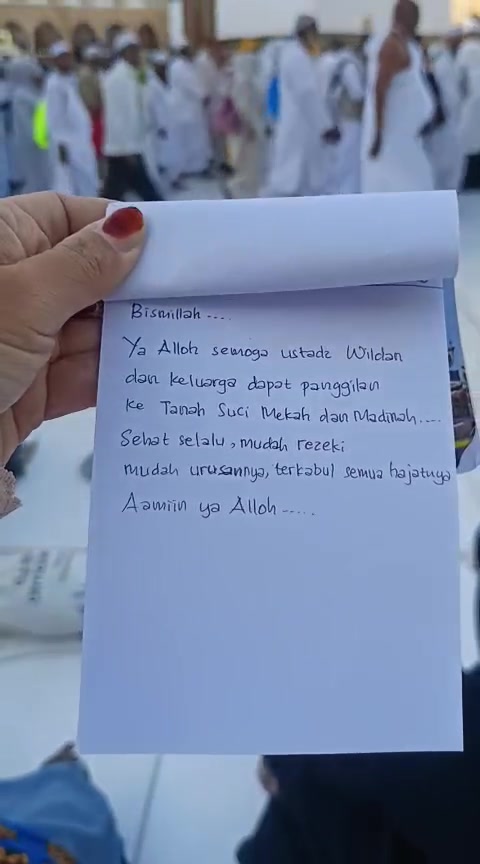 Bismillah ....
Ya Alloh semoga ustadz Wildan
dan keluarga dapat panggilan
ke Tanah Suci Mekah dan Madinah....
Sehat selalu, mudah rezeki
mudah urusannya, terkabul semua hajatnya
Aamiin ya Alloh .....